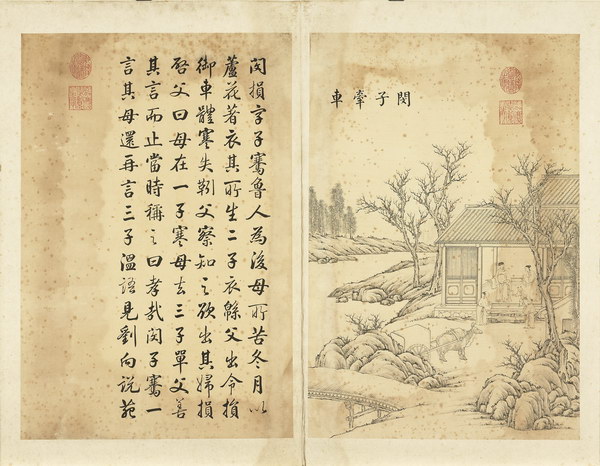 閔子牽車
閔損字子騫魯人為後母所苦冬月以
蘆花著衣其所生二子衣緜父出令損
御車體寒失靷父察知之欲出其婦損
啓父曰母在一子寒母去三子單父善
其言而止當時稱之曰孝哉閔子騫一
言其母還再言三子溫語見劉向說苑